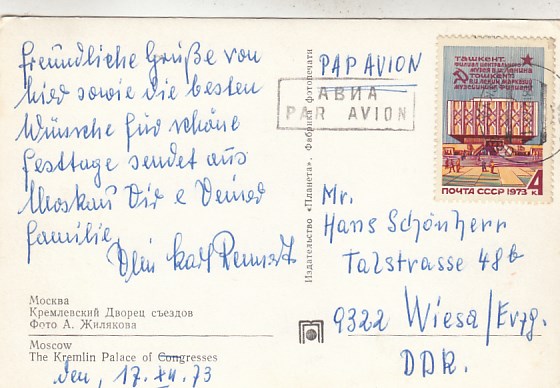 freundliche Grüße von
hier sowie die besten
Wünsche für schöne
Festtage sendet aus
Moskau Dir & Deiner
Familie
Dein Karl
Москва
Кремлевский Дворец съездов
Фото А. Жилякова
Moscow
The Kremlin Palace of Congresses
den, 17. XII. 73
Издательство «Планета». Фабрика фотопечати
PAR AVION
АВИА
PAR AVION
ташкент.
филиал центрального
музея В.И.Ленина
тошкент.
В.И.Ленин марказий
музейининг филиали
ПОЧТА СССР 1973
4 к
Mr.
Hans Schönherr
Talstrasse 48b
9322 Wiesa/Erzg.
DDR.